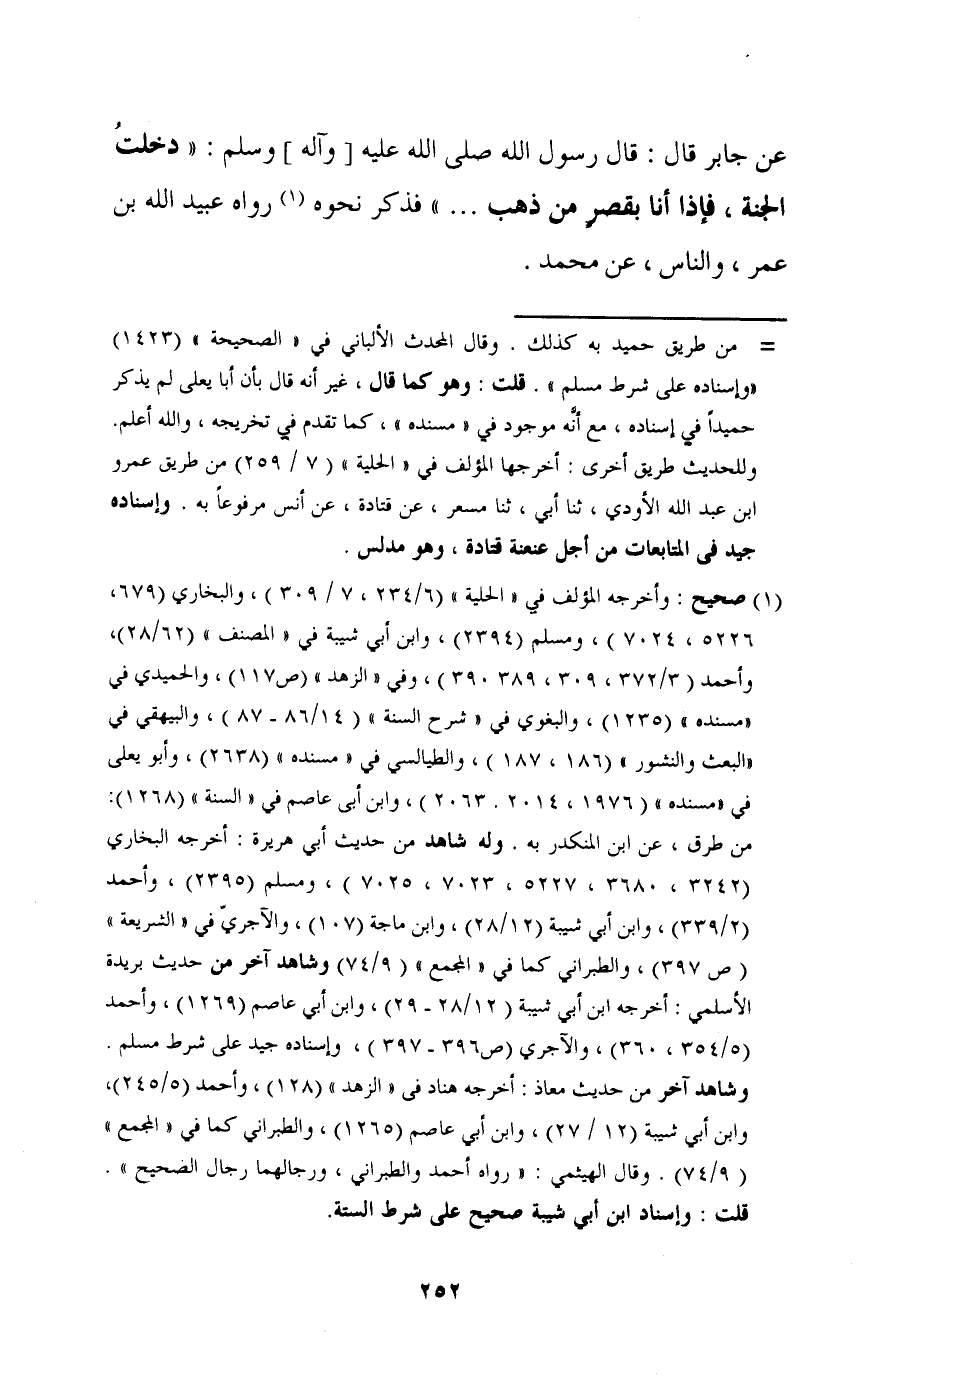 عن جابر قال : قال رسول الله صلى الله عليه [ وآله ] وسلم : « دخلتُ
الجنة ، فإذا أنا بقصرٍ من ذهب ... » فذكر نحوه (١) رواه عبيد الله بن
عمر ، والناس ، عن محمد .
= من طريق حميد به كذلك . وقال المحدث الألباني في « الصحيحة » (١٤٢٣)
«وإسناده على شرط مسلم » . قلت : وهو كما قال ، غير أنه قال بأن أبا يعلى لم يذكر
حميداً في إسناده ، مع أنَّه موجود في « مسنده » ، كما تقدم في تخريجه ، والله أعلم.
وللحديث طريق أخرى : أخرجها المؤلف في « الحلية » ( ٧ / ٢٥٩) من طريق عمرو
ابن عبد الله الأودي ، ثنا أبي ، ثنا مسعر ، عن قتادة ، عن أنس مرفوعاً به . وإسناده
جيد فى المتابعات من أجل عنعنة قتادة ، وهو مدلس .
(١) صحيح : وأخرجه المؤلف في « الحلية » (٢٣٤/٦ ، ٧ / ٣٠٩ ) ، والبخاري (٦٧٩،
٥٢٢٦ ، ٧٠٢٤ ) ، ومسلم (٢٣٩٤) ، وابن أبي شيبة في « المصنف » (٢٨/٦٢)،
وأحمد ( ٣٧٢/٣ ، ٣٠٩ ، ٣٨٩ ٣٩٠ ) ، وفي « الزهد » (ص١١٧) ، والحميدي في
«مسنده » (١٢٣٥) ، والبغوي في « شرح السنة » ( ٨٦/١٤ ـ ٨٧ ) ، والبيهقي في
«البعث والنشور » (١٨٦ ، ١٨٧ ) ، والطيالسي في « مسنده » (٢٦٣٨) ، وأبو يعلى
في «مسنده » ( ١٩٧٦ ، ٢٠١٤ . ٢٠٦٣ ) ، وابن أبى عاصم في « السنة » (١٢٦٨):
من طرق ، عن ابن المنكدر به . وله شاهد من حديث أبي هريرة : أخرجه البخاري
(٣٢٤٢ ، ٣٦٨٠ ، ٥٢٢٧ ، ٧٠٢٣ ، ٧٠٢٥ ) ، ومسلم (٢٣٩٥) ، وأحمد
(٣٣٩/٢) ، وابن أبي شيبة (٢٨/١٢) ، وابن ماجة (١٠٧) ، والآجريّ في « الشريعة »
( ص ٣٩٧) ، والطبراني كما في « المجمع » ( ٧٤/٩) وشاهد آخر من حديث بريدة
الأسلمي : أخرجه ابن أبي شيبة ( ٢٨/١٢ ـ ٢٩) ، وابن أبي عاصم (١٢٦٩) ، وأحمد
(٣٥٤/٥ ، ٣٦٠) ، والآجري (ص٣٩٦ ـ ٣٩٧ ) ، وإسناده جيد على شرط مسلم .
وشاهد آخر من حديث معاذ : أخرجه هناد فى « الزهد » (١٢٨) ، وأحمد (٢٤٥/٥)،
وابن أبي شيبة (١٢ / ٢٧) ، وابن أبي عاصم (١٢٦٥) ، والطبراني كما في « المجمع »
( ٧٤/٩) . وقال الهيثمي : « رواه أحمد والطبراني ، ورجالهما رجال الصحيح » .
قلت : وإسناد ابن أبي شيبة صحيح على شرط الستة.
٢٥٢